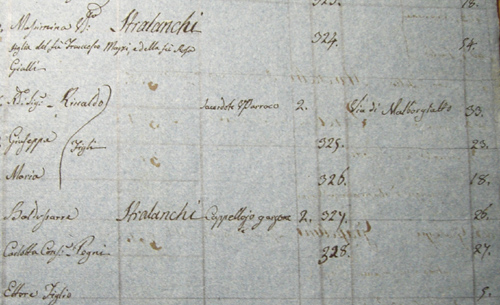 323. 18.
Massimina Stralanchi 324. 54.
figlia del fu Francesco Mazzi, e della fu Rosa
Gialli
Rinaldo Sacerdote Parroco 2. Via di Malborghetto 33.
Giuseppa Figli 325. 23.
Maria 326. 18.
Baldassarre Stralanchi Cappellajo garzone 2. 327. 26.
Carlotta Cons. Pegni 328. 27.
Ettore Figlio 5.